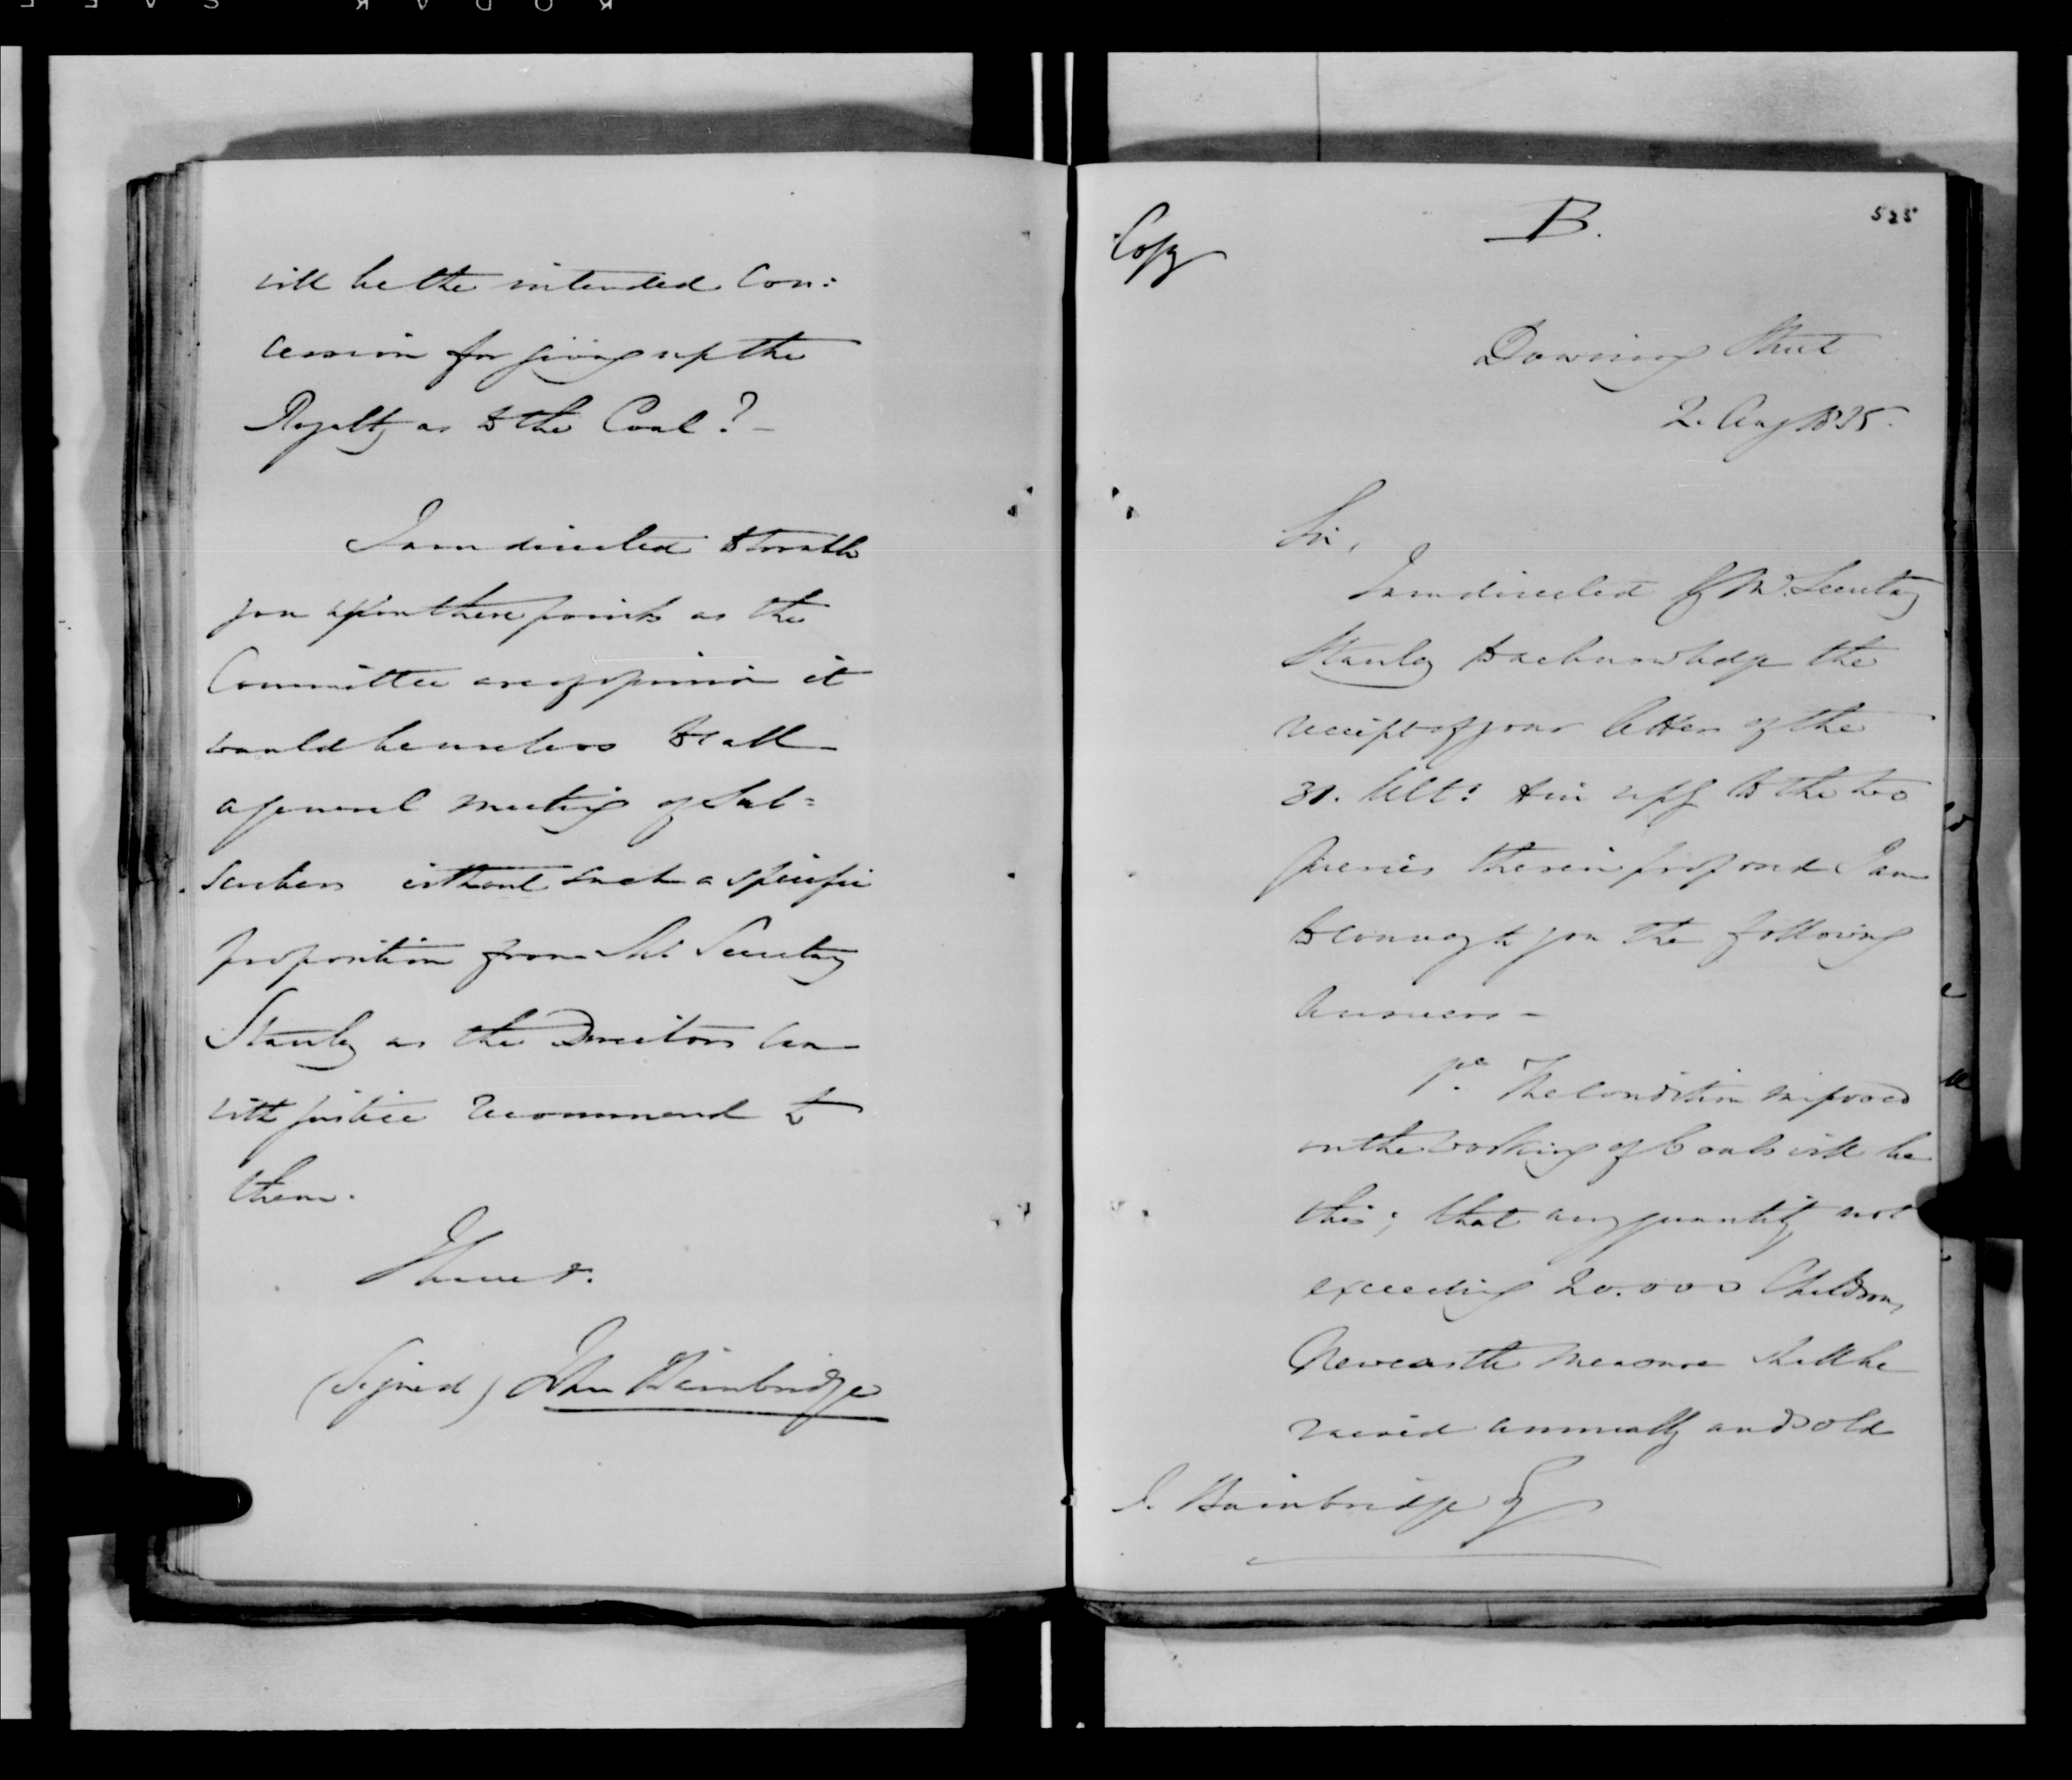 will be the intended Con:
cession for giving up the
Royalty as to the Coal? -
I am directed to trouble
you upon these points as the
Committee are of opinion it
would be useless to call
a general meeting of Sub=
scribers without such a specific
proposition from Mr Secretary
Stanley as the Directors can
with justice recommend to
them.
I have &.
(Signed) John Bainbridge
525
B.
Copy
Downing Street
2. Aug 1835.
Sir,
I am directed by Mr. Secretary
Stanley to acknowledge the
receipt of your letter of the
31. Ulto. & in reply to the two
Queries therein proposed I am
to convey to you the following
answers -
The condition imposed
on the working of Coals will be
this; that any quantity not
exceeding 20.000 Chaldrons,
Newcastle measure shall be
raised annually and sold
J. Bainbridge Esq